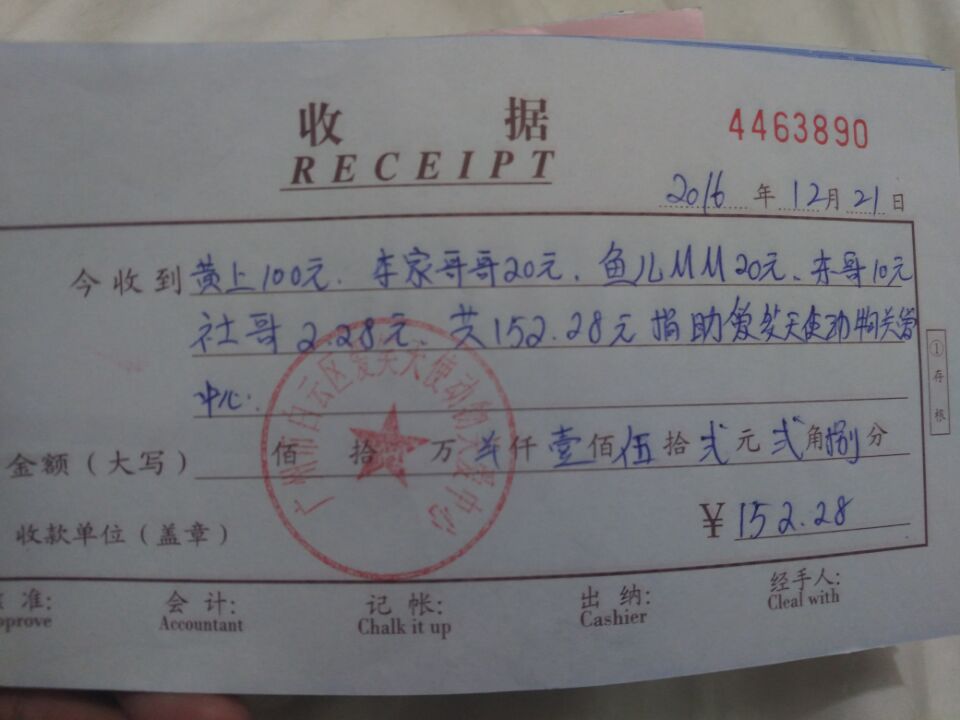 收 据
RECEIPT
4463890
2016 年 12 月 21 日
今收到 黄上100元、李家哥哥20元、鱼儿MM20元、东哥10元
社哥2.28元、共152.28元捐助爱笑天使动物关爱
中心.
①存根
金额（大写） 佰 拾 万 仟 壹 佰 伍 拾 贰 元 贰 角 捌 分
收款单位（盖章） ¥ 152.28
广州市白云区爱笑天使动物关爱中心
准: 会 计: 记 帐: 出 纳: 经手人:
Accountant Chalk it up Cashier Cleal with